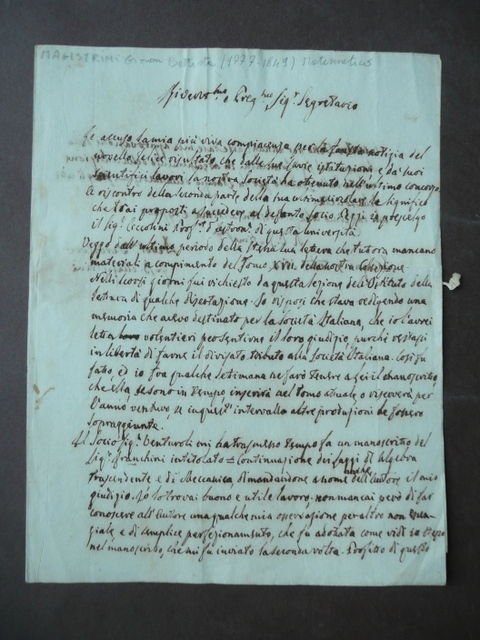 MAGISTRINI Giovan Battista (1777-1849) Matematico
Preg.mo Sig.r Segretario
Le accuso la mia più viva compiacenza per la fausta notizia del
novello felice risultato che dalle sue istituzione e da' suoi
scientifici lavori la nostra Società ha ottenuto nell'ultimo concorso.
A riscontro della seconda parte della sua le significo
che tra i proposti a succedere al defonto Socio io prescelgo
il Sig.r Ceccolini Prof.re d'astron.a di questa università.
Veggo dall'ultimo periodo della stessa sua lettera che tuttora mancano
materiali a compimento del Tomo XVII della nostra Collezione.
Nelli scorsi giorni fui richiesto da questa sezione dell'Istituto della
lettura di qualche dissertazione. Io risposi che stava estendendo una
memoria che avevo destinato per la Società Italiana, che io l'avrei
letta volentieri per sentirne il loro giudizio, purchè restassi
in libertà di farne il divisato tributo alla Società Italiana. Così fu
fatto, ed io fra qualche settimana ne farò tenere a lei il manoscritto,
che ella se sono in tempo inserirà nel tomo attuale o riserverà per
l'anno venturo se in quest'intervallo altre produzioni le fossero
sopraggiunte.
Il Socio Sig.r Venturoli mi ha trasmesso tempo fa un manoscritto del
Sig.r Franchini intitolato = Continuazione dei saggi di Algebra
trascendente e di Meccanica, dimandandone a nome dell'autore anche il mio
giudizio. Io lo trovai buono e utile lavoro: non mancai però di far
conoscere all'Autore una qualche mia osservazione per altro non essen-
ziale e di semplice perfezionamento, che fu adottata come vidi io stesso
nel manoscritto, che mi fu inviato la seconda volta. Profitto di questo